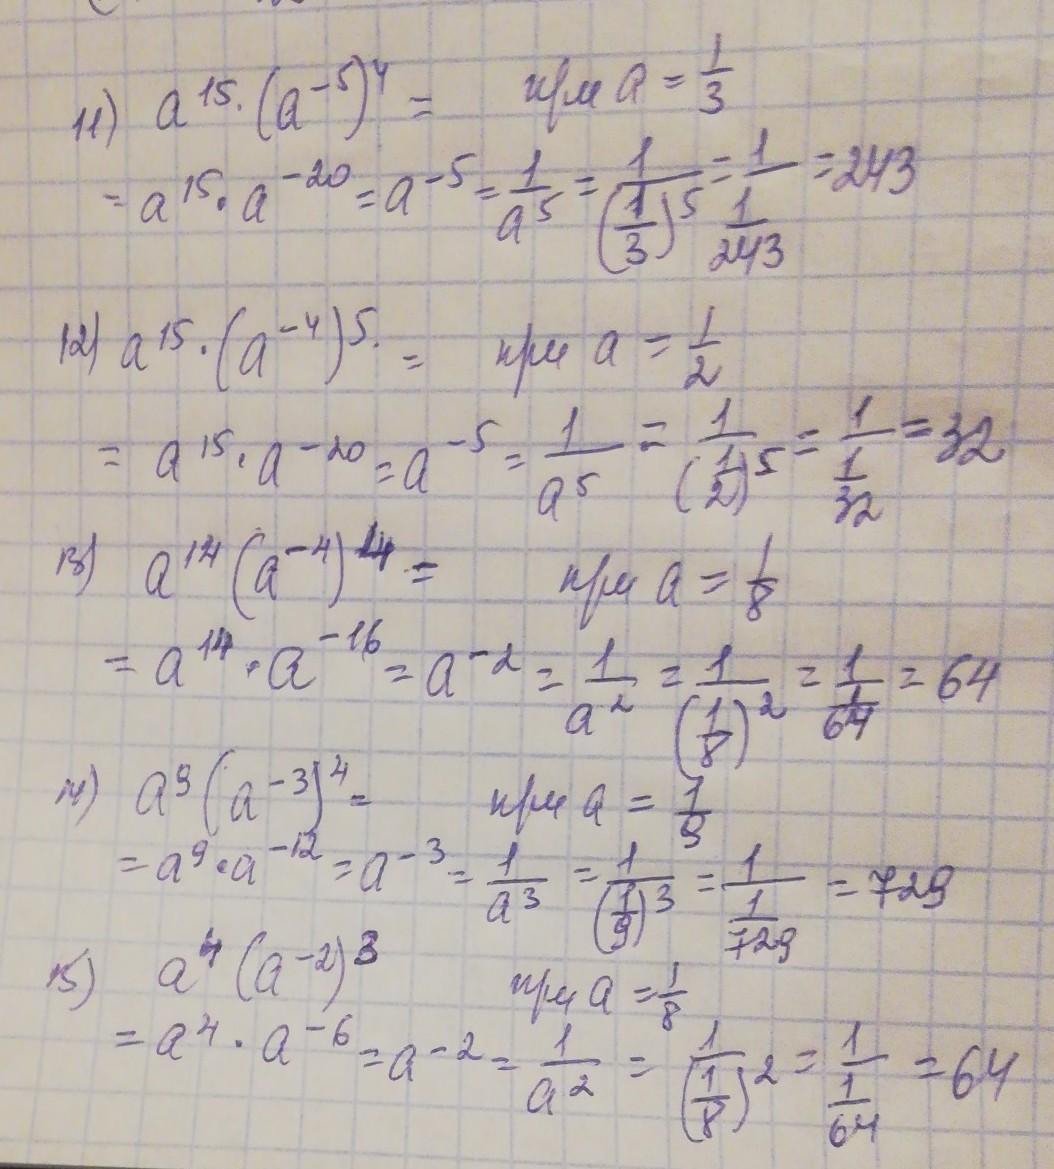 11) a^15 · (a^-5)^4 = при a = 1/3
= a^15 · a^-20 = a^-5 = 1/a^5 = 1/(1/3)^5 = 1/(1/243) = 243
12) a^15 · (a^-4)^5. = при a = 1/2
= a^15 · a^-20 = a^-5 = 1/a^5 = 1/(1/2)^5 = 1/(1/32) = 32
13) a^14 (a^-4)^4 = при a = 1/8
= a^14 · a^-16 = a^-2 = 1/a^2 = 1/(1/8)^2 = 1/(1/64) = 64
14) a^9 (a^-3)^4 = при a = 1/9
= a^9 · a^-12 = a^-3 = 1/a^3 = 1/(1/9)^3 = 1/(1/729) = 729
15) a^4 (a^-2)^3 при a = 1/8
= a^4 · a^-6 = a^-2 = 1/a^2 = 1/(1/8)^2 = 1/(1/64) = 64